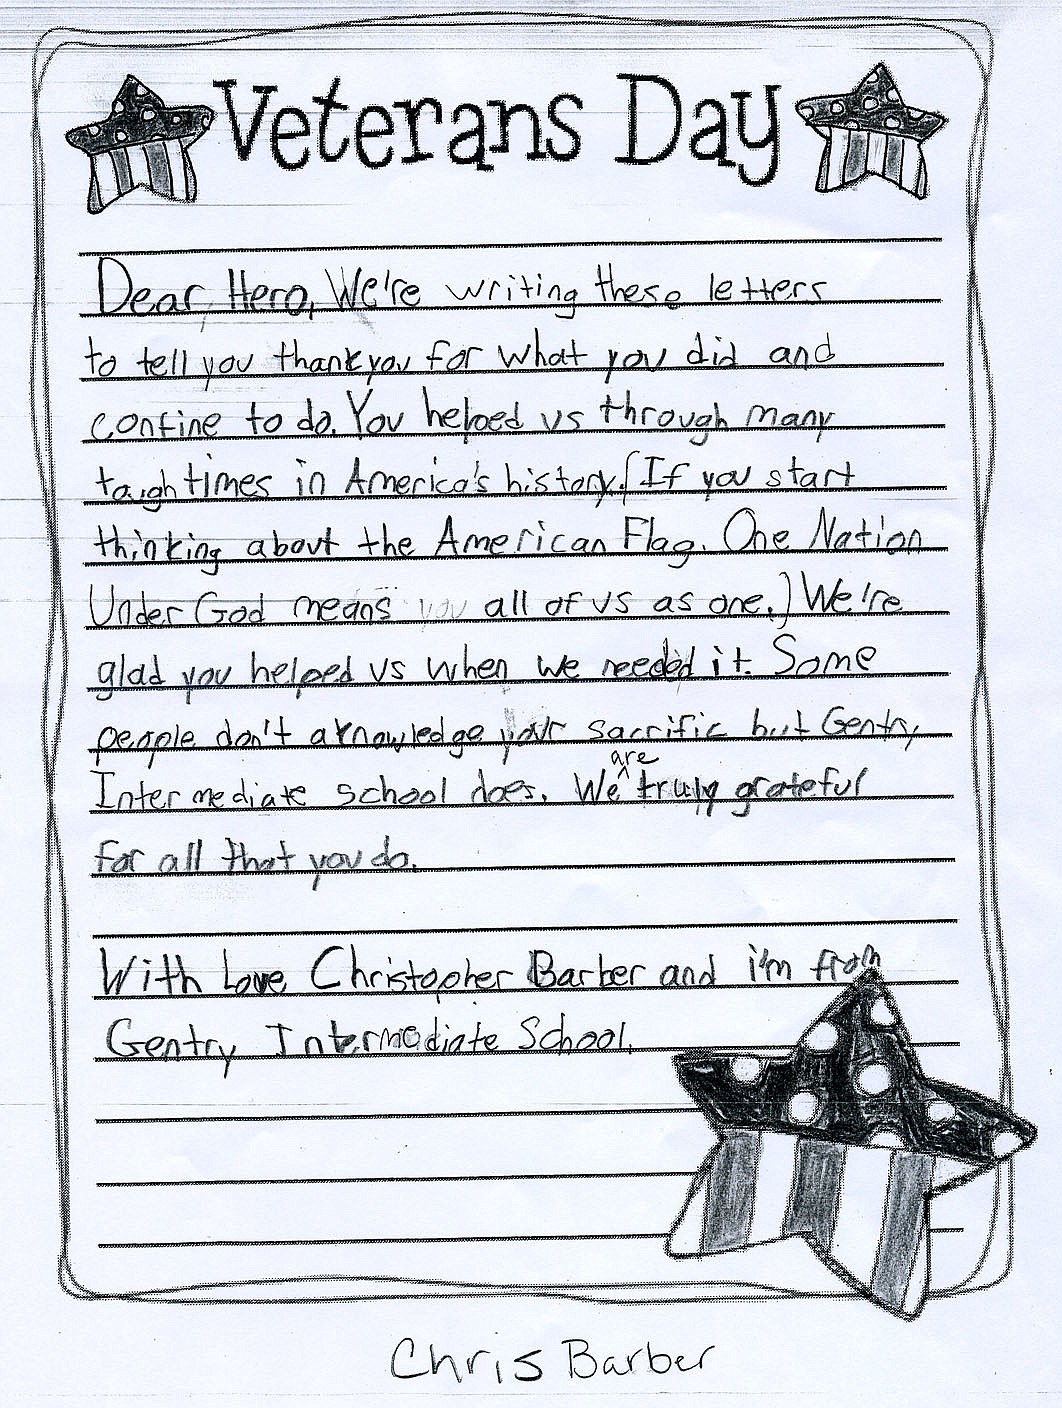 Veterans Day
Dear Hero, We're writing these letters
to tell you thank you for what you did and
contine to do. You helped us through many
tough times in America's history. (If you start
thinking about the American Flag. One Nation
Under God means you all of us as one.) We're
glad you helped us when we needed it. Some
people don't aknowledge your sacrific but Gentry
Intermediate school does. We are truly grateful
for all that you do.
With Love Christopher Barber and i'm from
Gentry Intermediate School.
Chris Barber